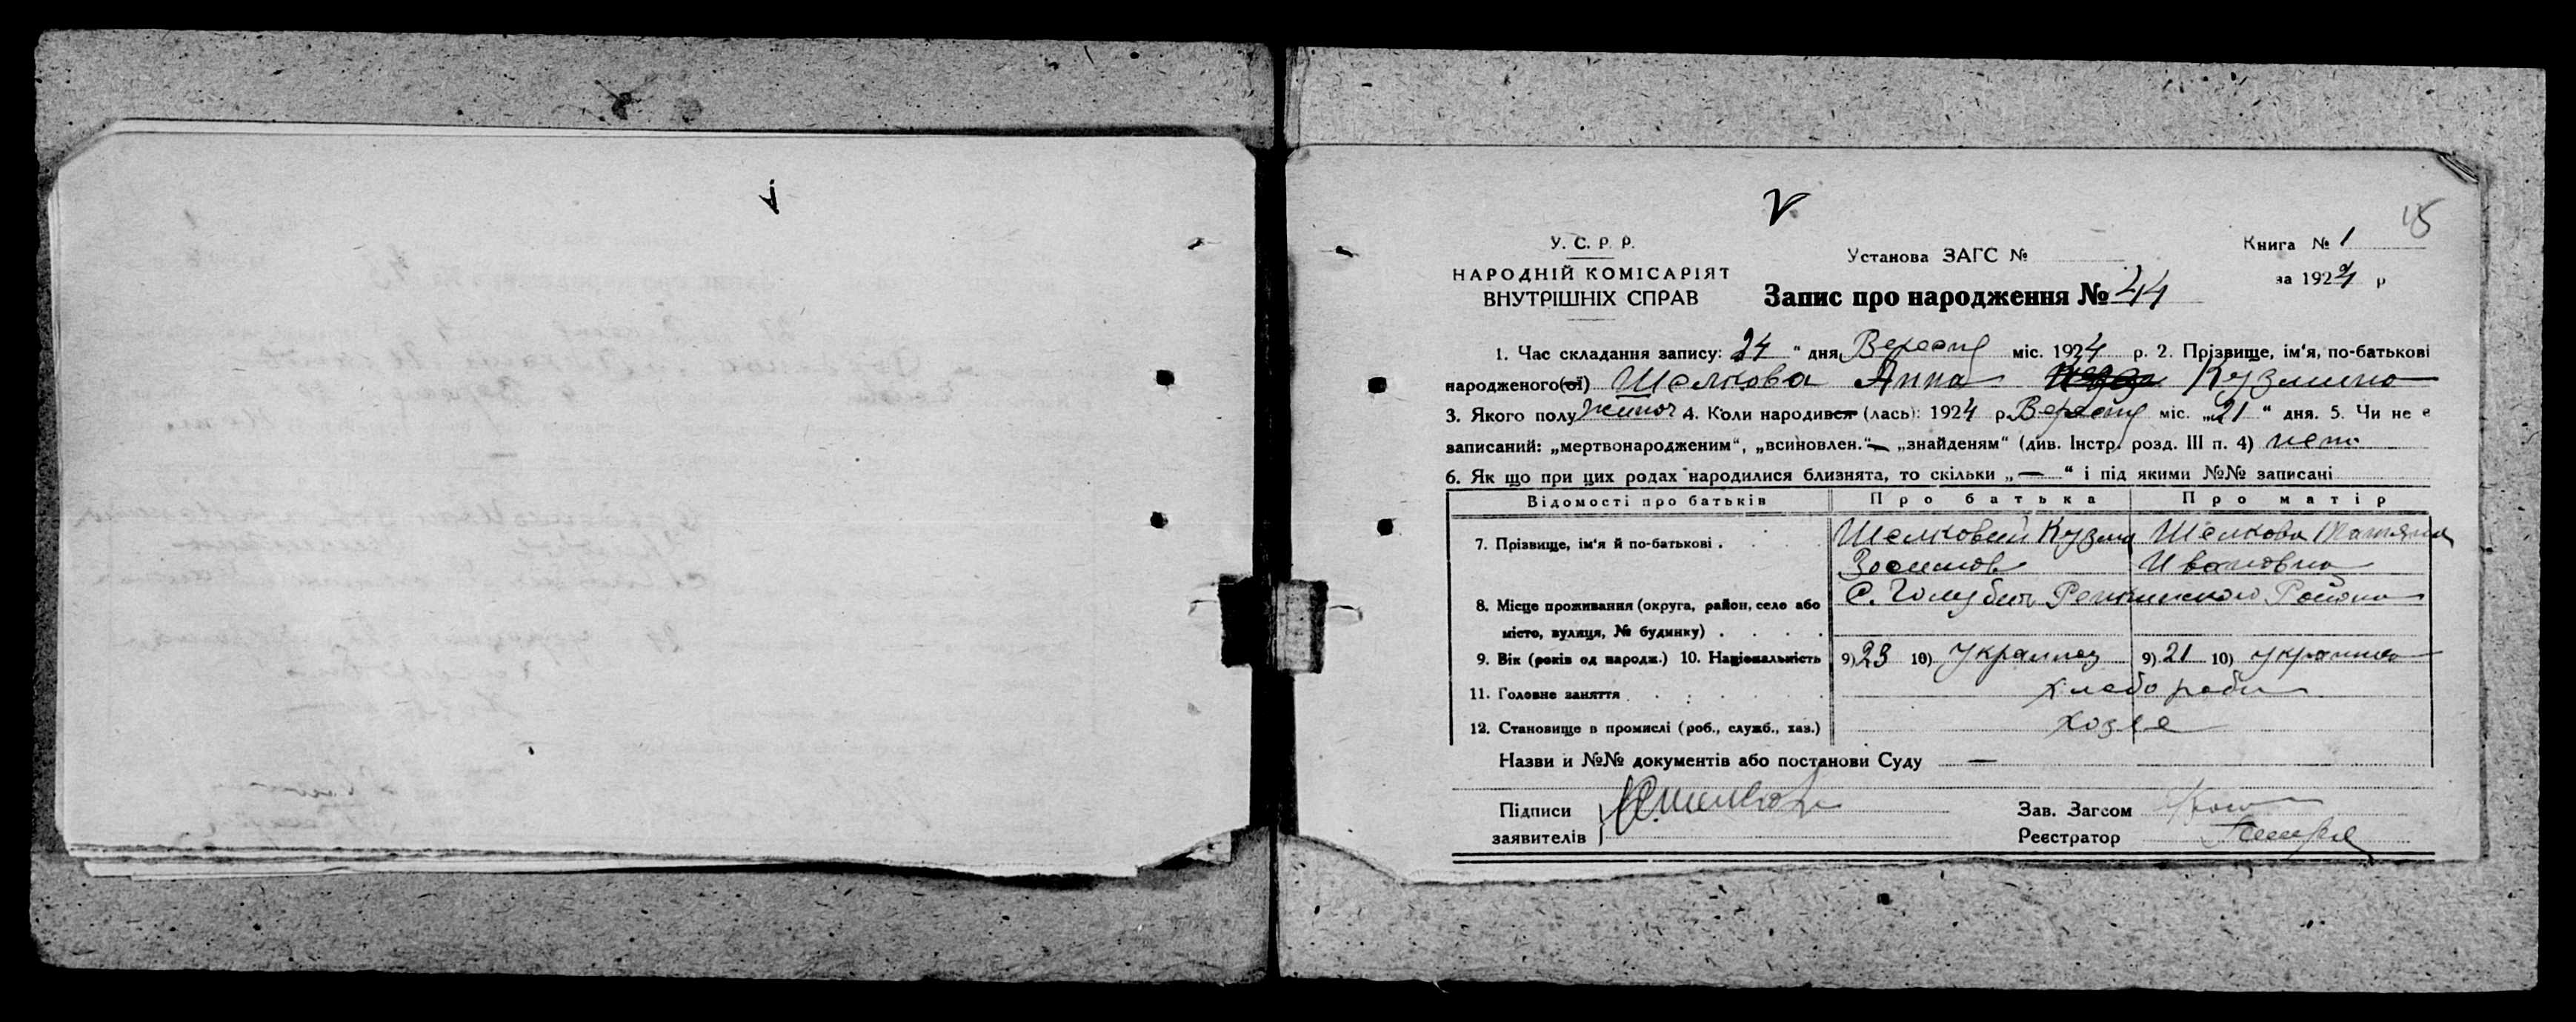 У. С. Р. Р.
НАРОДНІЙ КОМІСАРІЯТ
ВНУТРІШНІХ СПРАВ
Установа ЗАГС №
Книга № 1
за 1924 р
Запис про народження № 44
1. Час складання запису: 24 " дня Вересня міс. 1924 р. 2. Прізвище, ім'я, по-батькові
народженого(ої) Шелкова Анна Кузмино
3. Якого полу жіноч 4. Коли народився (лась): 1924 р Вересня міс. „21 " дня. 5. Чи не є
записаний: „мертвонародженим", „всиновлен." — „знайденям" (див. Інстр. розд. III п. 4) нет
6. Як що при цих родах народилися близнята, то скільки „ — " і під якими №№ записані
Відомості про батьків Про батька Про матір
7. Прізвище, ім'я й по-батькові . Шелковый Кузма Шелкова Татяна
Ивановна
8. Місце проживання (округа, район, село або С. Района
місто, вулиця, № будинку) .
9. Вік (років од народж.) 10. Національність 9) 23 10) Украинец 9) 21 10) украинка
11. Головне заняття хлебороб
12. Становище в промислі (роб., служб., хаз.)
Назви и №№ документів або постанови Суду —
Підписи
заявителів
Зав. Загсом
Реєстратор